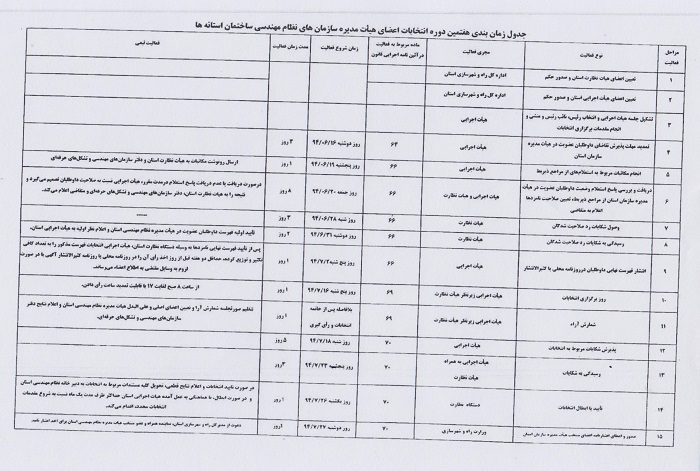 جدول زمان بندی هفتمین دوره انتخابات اعضای هیأت مدیره سازمان های نظام مهندسی ساختمان استانه ها
مراحل فعالیت
نوع فعالیت
مجری فعالیت
ماده مربوط به فعالیت در آئین نامه اجرایی قانون
زمان شروع فعالیت
مدت زمان فعالیت
فعالیت تبعی
۱ تعیین اعضای هیات نظارت استان و صدور حکم اداره کل راه و شهرسازی استان
۲ تعیین اعضای هیأت اجرایی استان و صدور حکم اداره کل راه و شهرسازی استان
۳ تشکیل جلسه هیات اجرایی و انتخاب رئیس، نائب رئیس و منشی و
انجام مقدمات برگزاری انتخابات هیأت اجرایی
۴ تمدید مهلت پذیرش تقاضای داوطلبان عضویت در هیأت مدیره
سازمان استان هیأت اجرایی ۶۴ روز دوشنبه ۹۴/۰۶/۱۶ ۳ روز
۵ انجام مکاتبات مربوط به استعلام از مراجع ذیربط هیأت اجرایی ۶۶ روز پنجشنبه ۹۴/۰۶/۱۹ ۱ روز ارسال رونوشت مکاتبات به هیأت نظارت استان و دفتر سازمان های مهندسی و تشکل‌های حرفه‌ای
۶ دریافت و بررسی پاسخ استعلام وضعیت داوطلبان عضویت در هیأت
مدیره سازمان استان از مراجع ذیربط، تعیین صلاحیت نامزدها
اعلام به متقاضی هیأت اجرایی و هیأت نظارت ۶۶ روز جمعه ۹۴/۰۶/۲۰ ۸ روز درصورت دریافت یا عدم دریافت پاسخ استعلام درمدت مقرر، هیأت اجرایی نسبت به صلاحیت داوطلبان تصمیم می‌گیرد و
نتیجه را به هیأت نظارت استان، دفتر سازمان‌های مهندسی و تشکل‌های حرفه‌ای و متقاضی اعلام می‌کند.
۷ وصول شکایات رد صلاحیت شدگان هیأت نظارت ۶۶ روز شنبه ۹۴/۰۶/۲۸ ۳ روز -----
۸ رسیدگی به شکایات رد صلاحیت شدگان هیأت نظارت ۶۶ روز دوشنبه ۹۴/۶/۳۱ ۲ روز تأیید اولیه فهرست داوطلبان عضویت در هیأت مدیره نظام مهندسی استان و اعلام نظر اولیه به هیأت اجرایی استان.
۹ انتشار فهرست نهایی داوطلبان درروزنامه محلی یا کثیرالانتشار هیأت اجرایی ۶۶ روز پنج شنبه ۹۴/۷/۲ ۱ روز پس از تأیید فهرست نهایی نامزدها به وسیله دستگاه نظارت استان، هیأت اجرایی انتخابات فهرست مذکور را به تعداد کافی
تکثیر و توزیع کرده، حداقل دو هفته قبل از روز اخذ رأی آن را در روزنامه محلی یا روزنامه کثیرالانتشار آگهی یا در صورت
لزوم به وسایل مقتضی به اطلاع اعضاء می‌رساند.
۱۰ روز برگزاری انتخابات هیأت اجرایی زیرنظر هیأت نظارت ۶۹ روز پنج شنبه ۹۴/۷/۱۶ ۱ روز از ساعت ۸ صبح لغایت ۱۷ با قابلیت تمدید ساعت رأی دادن.
۱۱ شمارش آراء هیأت اجرایی زیرنظر هیأت نظارت ۶۹ بلافاصله پس از خاتمه
انتخابات و رأی گیری ۱ روز تنظیم صورتجلسه شمارش آرا و تعیین اعضای اصلی و علی البدل هیات مدیره نظام مهندسی استان و اعلام نتایج دفتر
سازمان‌های مهندسی و تشکل‌های حرفه‌ای.
۱۲ پذیرش شکایات مربوط به انتخابات هیأت اجرایی ۷۰ روز شنبه ۹۴/۷/۱۸ ۵ روز
۱۳ رسیدگی به شکایات هیأت اجرایی به همراه
هیأت نظارت ۷۰ روز پنجشنبه ۹۴/۷/۲۳ ۳روز
۱۴ تأیید یا ابطال انتخابات دستگاه نظارت ۷۰ روز یکشنبه ۹۴/۷/۲۶ ۱ روز در صورت تایید انتخابات و اعلام نتایج قطعی، تحویل کلیه مستندات مربوط به انتخابات به دبیر خانه نظام مهندسی استان
و در صورت ابطال، با هماهنگی به عمل آمده هیأت اجرایی استان حداکثر ظرف مدت یک ماه نسبت به شروع مقدمات
انتخابات مجدد، اقدام می‌کند.
۱۵ صدور و امضای اعتبارنامه اعضای منتخب هیات مدیره سازمان استان وزارت راه و شهرسازی ۷۰ روز دوشنبه ۹۴/۷/۲۷ ۱روز دعوت از مدیرکل راه و شهرسازی استان، نماینده همراه و عضو منتخب هیات مدیره نظام مهندسی استان برای اخذ اعتبار نامه